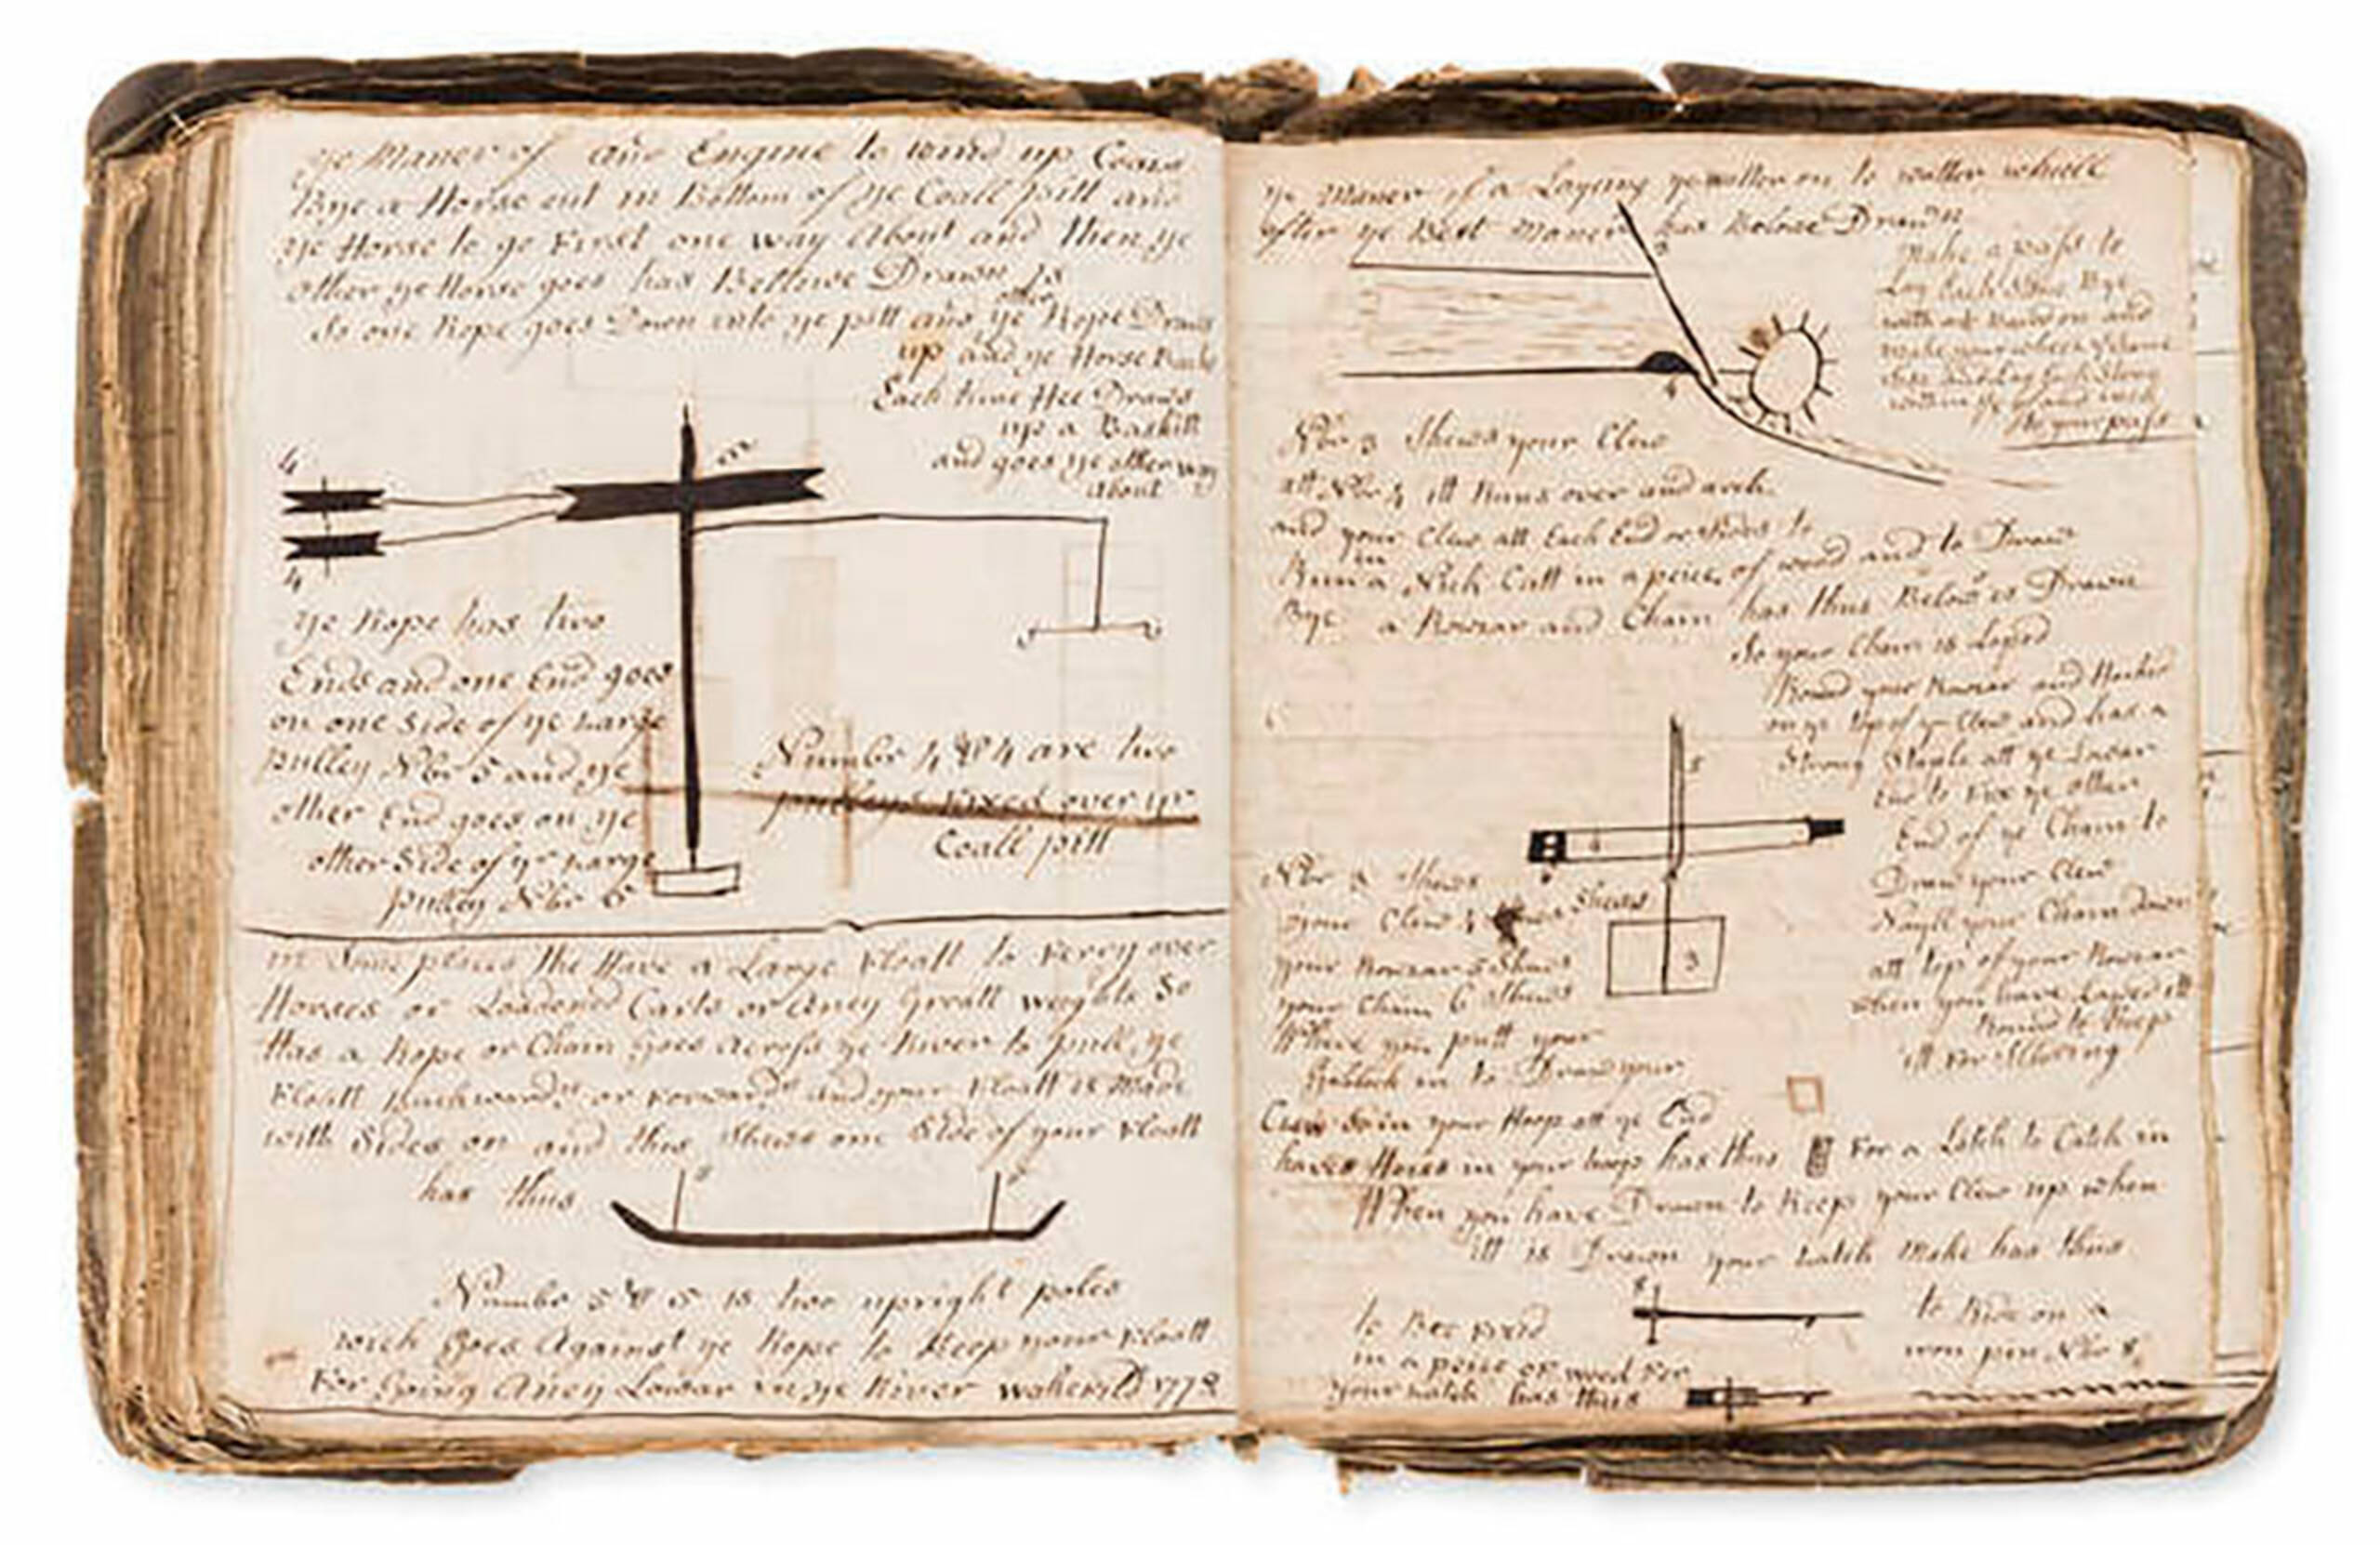 ye Maner of ane Engine to wind up Coals
Bye a Horse out in Bottom of ye Coall pitt and
ye Horse to go First one way About and then ye
other ye Horse goes has Bellowe Drawn is
So one Rope goes Down into ye pitt and ye other Rope Draws
up and ye Horse
Each time Hee Draws
up a Baskitt
and goes ye other way
About
4
4
ye Rope has two
Ends and one End goes
on one Side of ye Large
pulley Nbr 5 and ye
other End goes on ye
other Side of ye Large
pulley Nbr 5
Numbr 4 & 4 are two
pulleys Fixed over ye
Coall pitt
in Some places the Have a Large Floatt to Ferry over
Horses or Loadened Carts or Aney Greatt weights So
Has a Rope or Chain goes Across ye River to pull ye
Floatt Backwards or Forwards and your Floatt is Made
with Sides on and this Shews one Side of your Floatt
has thus
Numbr 5 & 5 is two upright poles
wich Goes Against ye Rope to Keep your Floatt
For Going Aney Lowar in ye River 177
ye Maner of a Laying ye watter on to watter wheell
after ye Best Maner has Belowe Drawn
Make a to
Lay Each Side Bye
and
make your wheel
within ye
3
4
Nbr 3 Shews your Clow
att Nbr 4 itt Runs over and arch
and your Clow att Each End or Sides to
Run in a Nick Cutt in a peice of wood and to Draw
Bye a Rowzar and Chain has thus Below is Drawn
So your Chain is Loped
Round your Rowzar and
on ye top of ye Clow and has a
Strong Staple att ye Lowar
End to Fix ye other
End of ye Chain to
Draw your Clow
Nayll your Chain down
att top of your Rowzar
when you have Lapt itt
Round to Keep
itt For Slivring
5
4
3
Nbr 3 Shews
your Clow 4 Shews
your Rowzar 5 Shews
your Chain 6 Shews
Where you putt your
in to Draw your
Clow in your Hoop att ye End
have Holes in your hoop has thus For a Latch to Catch in
When you have Drawn to Keep your Clow up when
itt is Drawn your Latch Make has thus
8
to Bee Fixed
in a peice of wood For
your Latch has thus
to Ride on a
iron pin Nbr 8